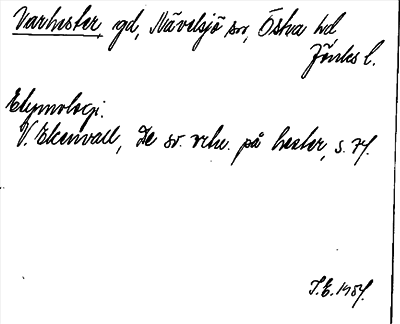 Varhester gd, Nävelsjö sn, Östra hd,
Jönks l.
Etymologi.
V. Ekenvall, De sv. ortn. på hester, s. 74.
I.E. 1957.